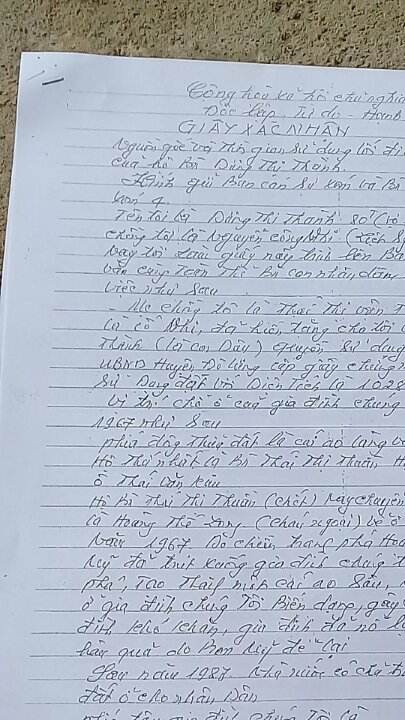 Cộng hoà xã hội chủ nghĩa
Độc lập Tự do Hạnh
GIẤY XÁC NHẬN
Nguồn gốc và Thời gian sử dụng lối đi
của hộ Bà Đặng Thị Thành
Kính gửi Ban cán sự xóm và Bà
xóm 9
Tên tôi là Đặng Thị Thành
chồng tôi là Nguyễn Công Nhỉ (
Nay tôi làm giấy này trình lên Ban
cùng Toàn Thể Bà con nhân dân
việc như sau
- Mẹ chồng tôi là Thái Thị
là cố Nhỉ, đã hiến tặng cho tôi
Thành (là con Dâu) quyền sử dụng
UBND Huyện Đô Lương cấp giấy chứng n
Sử Dụng đất với Diện Tích là 1028
Vị trí chỗ ở của gia đình chúng
1967 như sau
phía đông Thửa đất là cái ao làng
Hộ Thứ nhất là Bà Thái Thị Thuần
Ô Thái Văn
Hộ Bà Thái Thị Thuần (chết) nay chuyển
là Hoàng Thế (cháu ngoại) về ở
Năm 1967. Do chiến tranh phá Hoạ
Mỹ đã trút xuống gia đình chúng T
phá, Tạo Thành cái ao sâu,
ở gia đình chúng Tôi Biến dạng, gây
đình khó khăn, gia đình đã nỗ l
hậu quả do Bom Mỹ để lại
Sau năm 1987. Nhà nước có
đất ở cho nhân Dân
gia đình chúng Tôi là